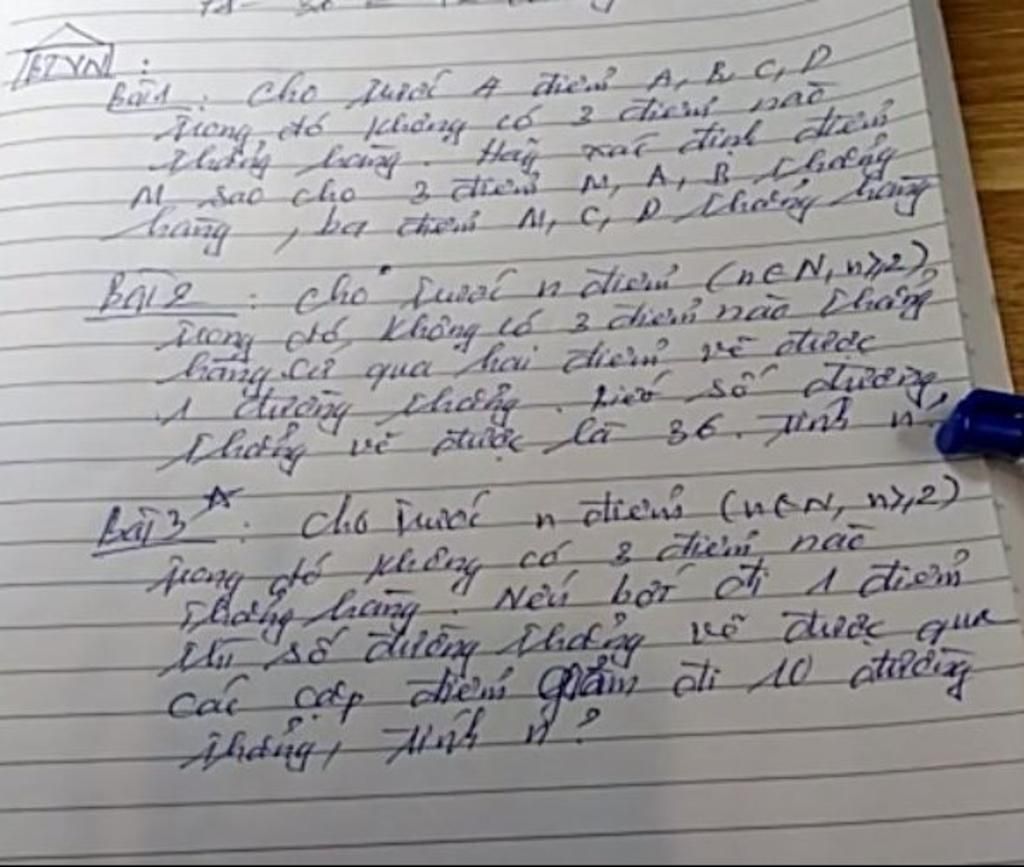 BTVN :
Bài 1 : Cho trước 4 điểm A, B, C, D
trong đó không có 3 điểm nào
thẳng hàng. Hãy xác định điểm
M sao cho 3 điểm M, A, B thẳng
hàng, ba điểm M, C, D thẳng hàng
Bài 2 : Cho trước n điểm (n∈N, n≥2)
trong đó không có 3 điểm nào thẳng
hàng. Cứ qua hai điểm vẽ được
1 đường thẳng. Biết số đường
thẳng vẽ được là 36. Tính n.
Bài 3 ☆ : Cho trước n điểm (n∈N, n≥2)
trong đó không có 3 điểm nào
thẳng hàng. Nếu bớt đi 1 điểm
thì số đường thẳng vẽ được qua
các cặp điểm giảm đi 10 đường
thẳng, tính n?